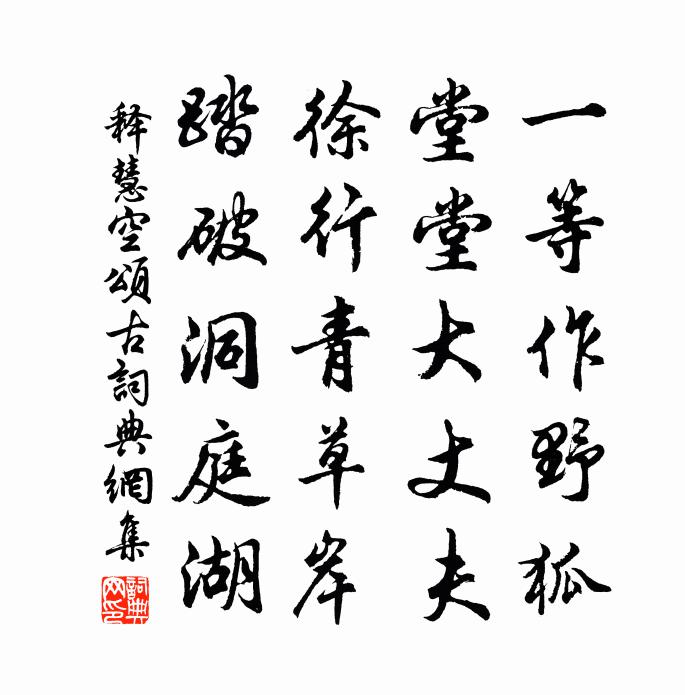 一等作野狐
堂堂大丈夫
徐行青草岸
踏破洞庭湖
释慧空頌古詞典網集
詞典
网印